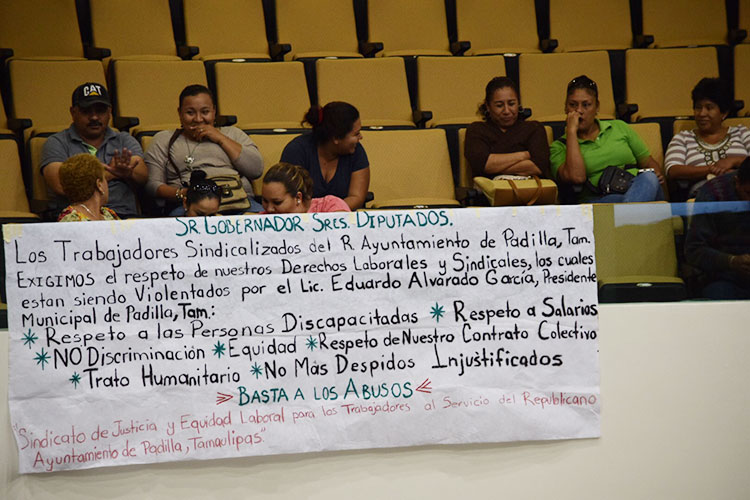 CAT
SR. GOBERNADOR SRES. DIPUTADOS.
Los Trabajadores Sindicalizados del R. Ayuntamiento de Padilla, Tam.
EXIGIMOS el respeto de nuestros Derechos Laborales y Sindicales, los cuales
estan siendo Violentados por el Lic. Eduardo Alvarado García, Presidente
Municipal de Padilla, Tam.:
* Respeto a las Personas Discapacitadas * Respeto a Salarios
* NO Discriminación * Equidad * Respeto de Nuestro Contrato Colectivo
* Trato Humanitario * No Más Despidos Injustificados
>> BASTA A LOS ABUSOS <<
"Sindicato de Justicia y Equidad Laboral para los Trabajadores al Servicio del Republicano
Ayuntamiento de Padilla, Tamaulipas".